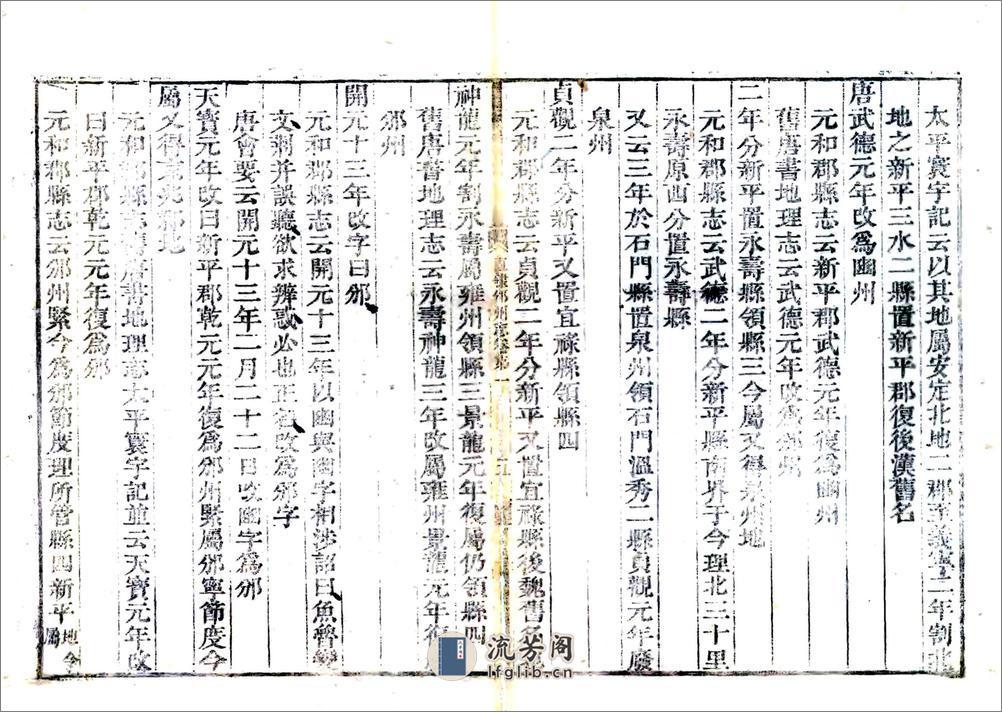 太平寰宇記云以其地屬安定北地二郡至義寧二年割北
地之新平三水二縣置新平郡復後漢舊名
唐武德元年改為豳州
元和郡縣志云新平郡武德元年復為豳州
舊唐書地理志云武德元年改為邠州
二年分新平置永壽縣領縣三今屬又得泉州地
元和郡縣志云武德二年分新平縣南界于今理北三十里
永壽原西分置永壽縣
又云三年於石門縣置泉州領石門溫秀二縣貞觀元年廢
泉州
貞觀二年分新平又置宜祿縣領縣四
元和郡縣志云貞觀二年分新平又置宜祿縣後魏舊名
神龍元年割永壽屬雍州領縣三景龍元年復屬仍領縣四
舊唐書地理志云永壽神龍三年改屬雍州景龍元年復
邠州
直隸邠州志卷第一
五
開元十三年改字曰邠
元和郡縣志云開元十三年以豳與幽字相涉詔曰魚魯變
文荊并誤聽欲求辨惑必也正名改為邠字
唐會要云開元十三年二月二十二日改豳字為邠
天寶元年改曰新平郡乾元元年復為邠州緊屬邠寧節度今
屬又得地
元和郡縣志舊唐書地理志太平寰宇記並云天寶元年改
曰新平郡乾元元年復為邠
元和郡縣志云邠州緊今為邠節度理所管縣四新平地今屬
流芳阁
lfglib.cn